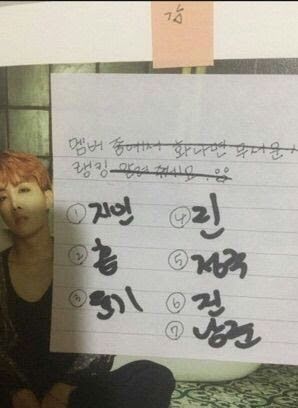 멤버 중에서 화나면 무서운
랭킹 알려 주세요
① 지민
② 홉
③ 윤기
④
⑤ 정국
⑥ 진
⑦ 남준